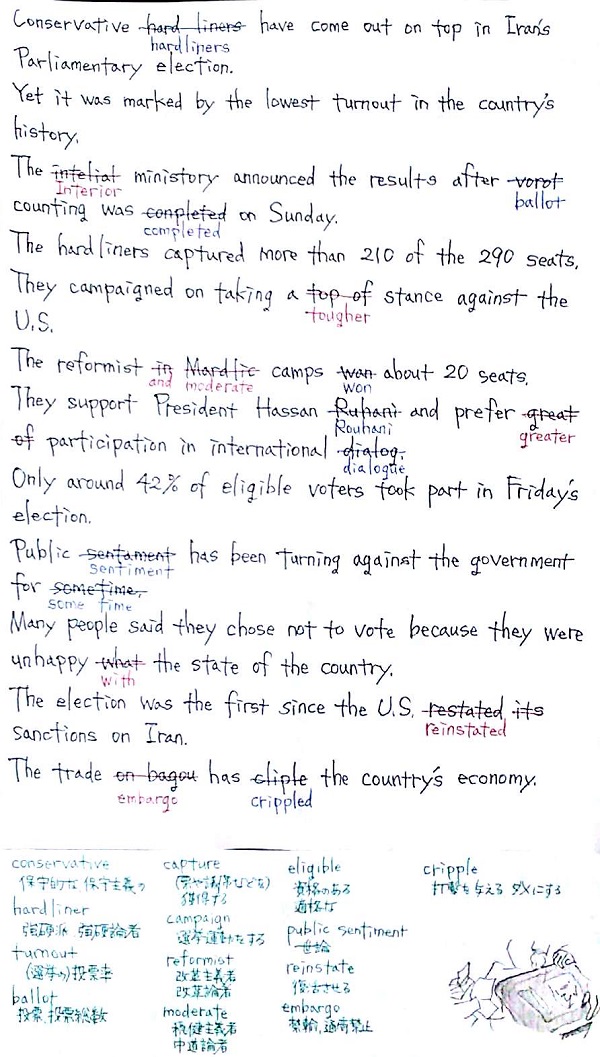 Conservative hard liners have come out on top in Iran's
hardliners
Parliamentary election.
Yet it was marked by the lowest turnout in the country's
history.
The inteliat ministory announced the results after vorot
Interior
ballot
counting was conpleted on Sunday.
completed
The hardliners captured more than 210 of the 290 seats.
They campaigned on taking a top of stance against the
tougher
U.S.
The reformist in Mardtic camps wan about 20 seats.
and moderate won
They support President Hassan Ruhani and prefer great
Rouhani
greater
of participation in international dialog.
dialogue
Only around 42% of eligible voters took part in Friday's
election.
Public sentament has been turning against the government
sentiment
for sometime.
some time
Many people said they chose not to vote because they were
unhappy what the state of the country.
with
The election was the first since the U.S. restated its
reinstated
sanctions on Iran.
The trade on bagou has cliple the country's economy.
embargo crippled
conservative
保守的な 保守主義の
hardliner
強硬派 強硬論者
turnout
(選挙の)投票率
ballot
投票、投票総数
capture
(票や議席などを)
獲得する
campaign
選挙運動をする
reformist
改革主義者
改革論者
moderate
穏健主義者
中道論者
eligible
資格のある
適格な
public sentiment
世論
reinstate
復古させる
embargo
禁輸、通商禁止
cripple
打撃を与える ダメにする